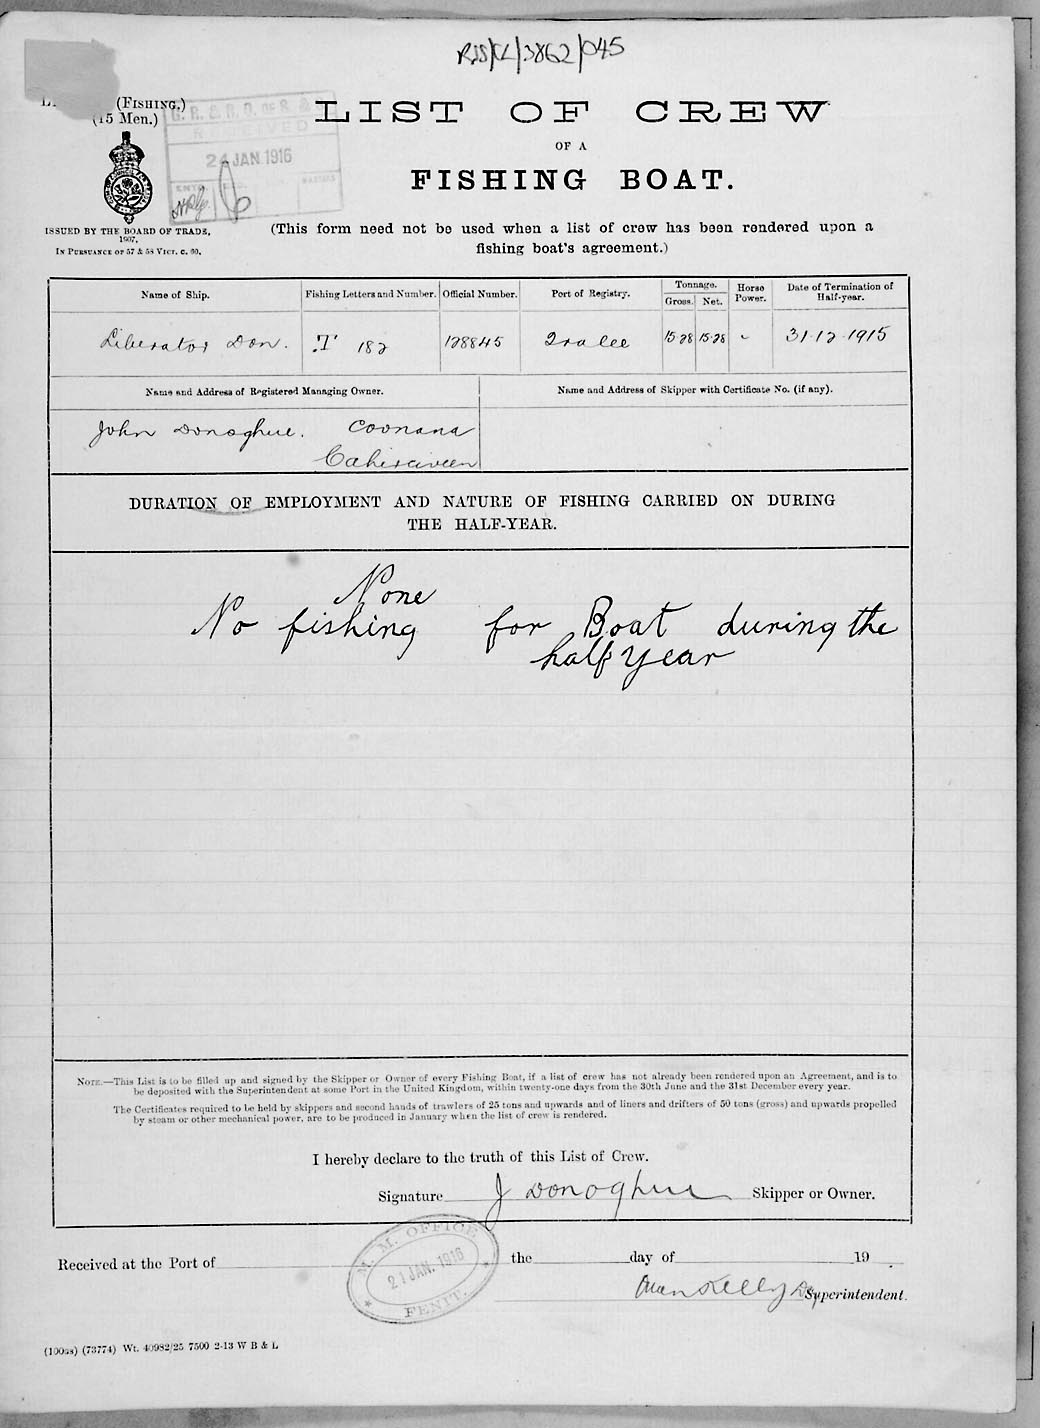 RSS/CL/3862/045
(FISHING.)
(15 Men.)
G. R. & R. O. OF S. & S.
RECEIVED
24 JAN. 1916
LIST OF CREW
OF A
FISHING BOAT.
ISSUED BY THE BOARD OF TRADE,
1907,
IN PURSUANCE OF 57 & 58 VICT. C. 60.
(This form need not be used when a list of crew has been rendered upon a
fishing boat's agreement.)
Name of Ship. Fishing Letters and Number. Official Number. Port of Registry. Tonnage. Gross. Net. Horse Power. Date of Termination of Half-year.
Liberator Don. T 182 128845 Tralee 15.28 15.28 - 31.12.1915
Name and Address of Registered Managing Owner. Name and Address of Skipper with Certificate No. (if any).
John Donoghue. Coonana
Cahirciveen
DURATION OF EMPLOYMENT AND NATURE OF FISHING CARRIED ON DURING
THE HALF-YEAR.
None
No fishing for Boat during the
half year
NOTE.—This List is to be filled up and signed by the Skipper or Owner of every Fishing Boat, if a list of crew has not already been rendered upon an Agreement, and is to
be deposited with the Superintendent at some Port in the United Kingdom, within twenty-one days from the 30th June and the 31st December every year.
The Certificates required to be held by skippers and second hands of trawlers of 25 tons and upwards and of liners and drifters of 50 tons (gross) and upwards propelled
by steam or other mechanical power, are to be produced in January when the list of crew is rendered.
I hereby declare to the truth of this List of Crew.
Signature J Donoghue Skipper or Owner.
M. M. OFFICE
21 JAN. 1916
FENIT.
Received at the Port of the day of 19 .
Kelly Superintendent.
(100GS) (73774) Wt. 40982/25 7500 2-13 W B & L